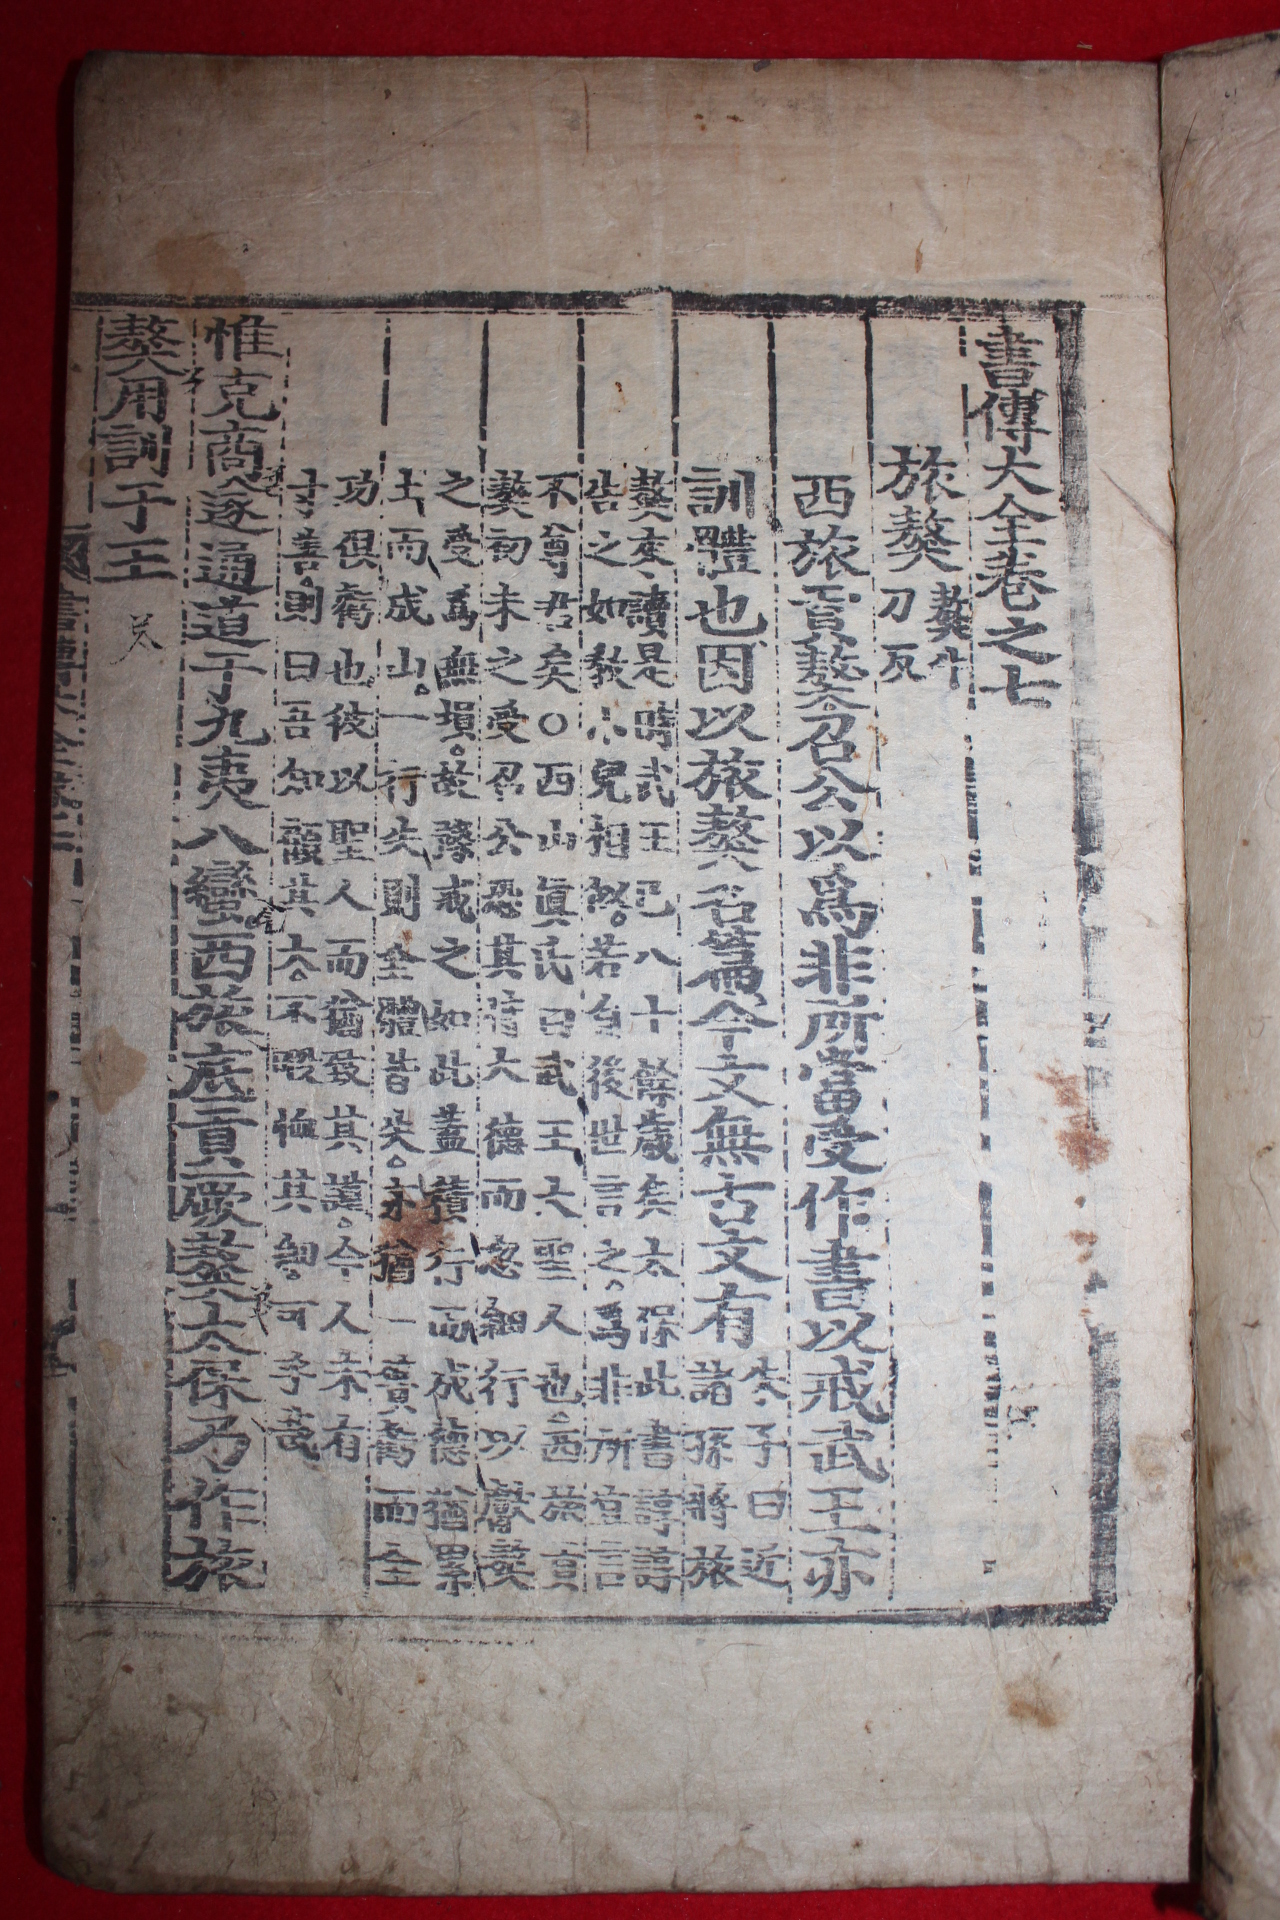 書傳大全卷之七
旅獒 獒牛
刀反
西旅貢獒召公以爲非所當受作書以戒武王亦
訓體也因以旅獒名篇今文無古文有
朱子曰近
諸孫將旅
獒來讀是時武王已八十餘歲矣太保此書諄諄
告之如敎小兒相似若自後世言之爲非所宜言
不尊君矣○西山眞氏曰武王大聖人也西旅貢
獒初未之受召公恐其恃大德而忽細行以啓獒
之受爲無損故豫戒之如此蓋積行而成德猶累
土而成山一行失則全體皆失亦猶一簣虧而全
功俱虧也彼以聖人而猶致其謹今人未有
寸善則曰吾知
其大不暇恤其細可乎哉
惟克商遂通道于九夷八蠻西旅底貢厥獒太保乃作旅
獒用訓于王